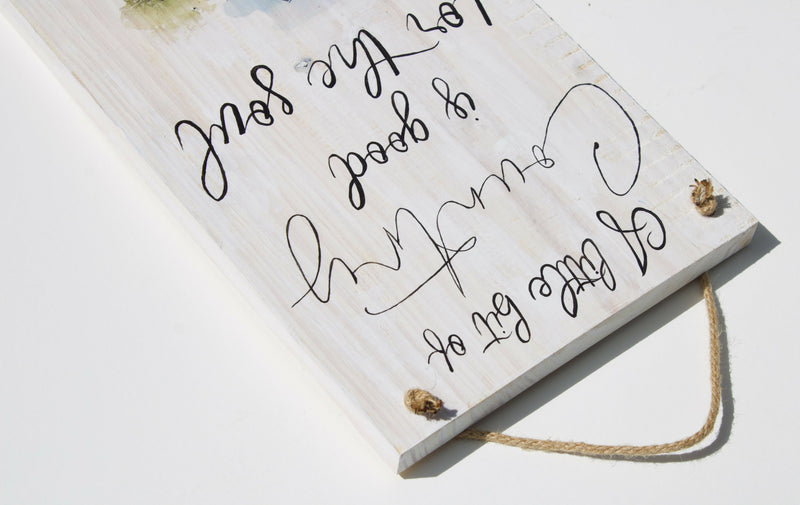 A little bit of
Country
is good
for the soul